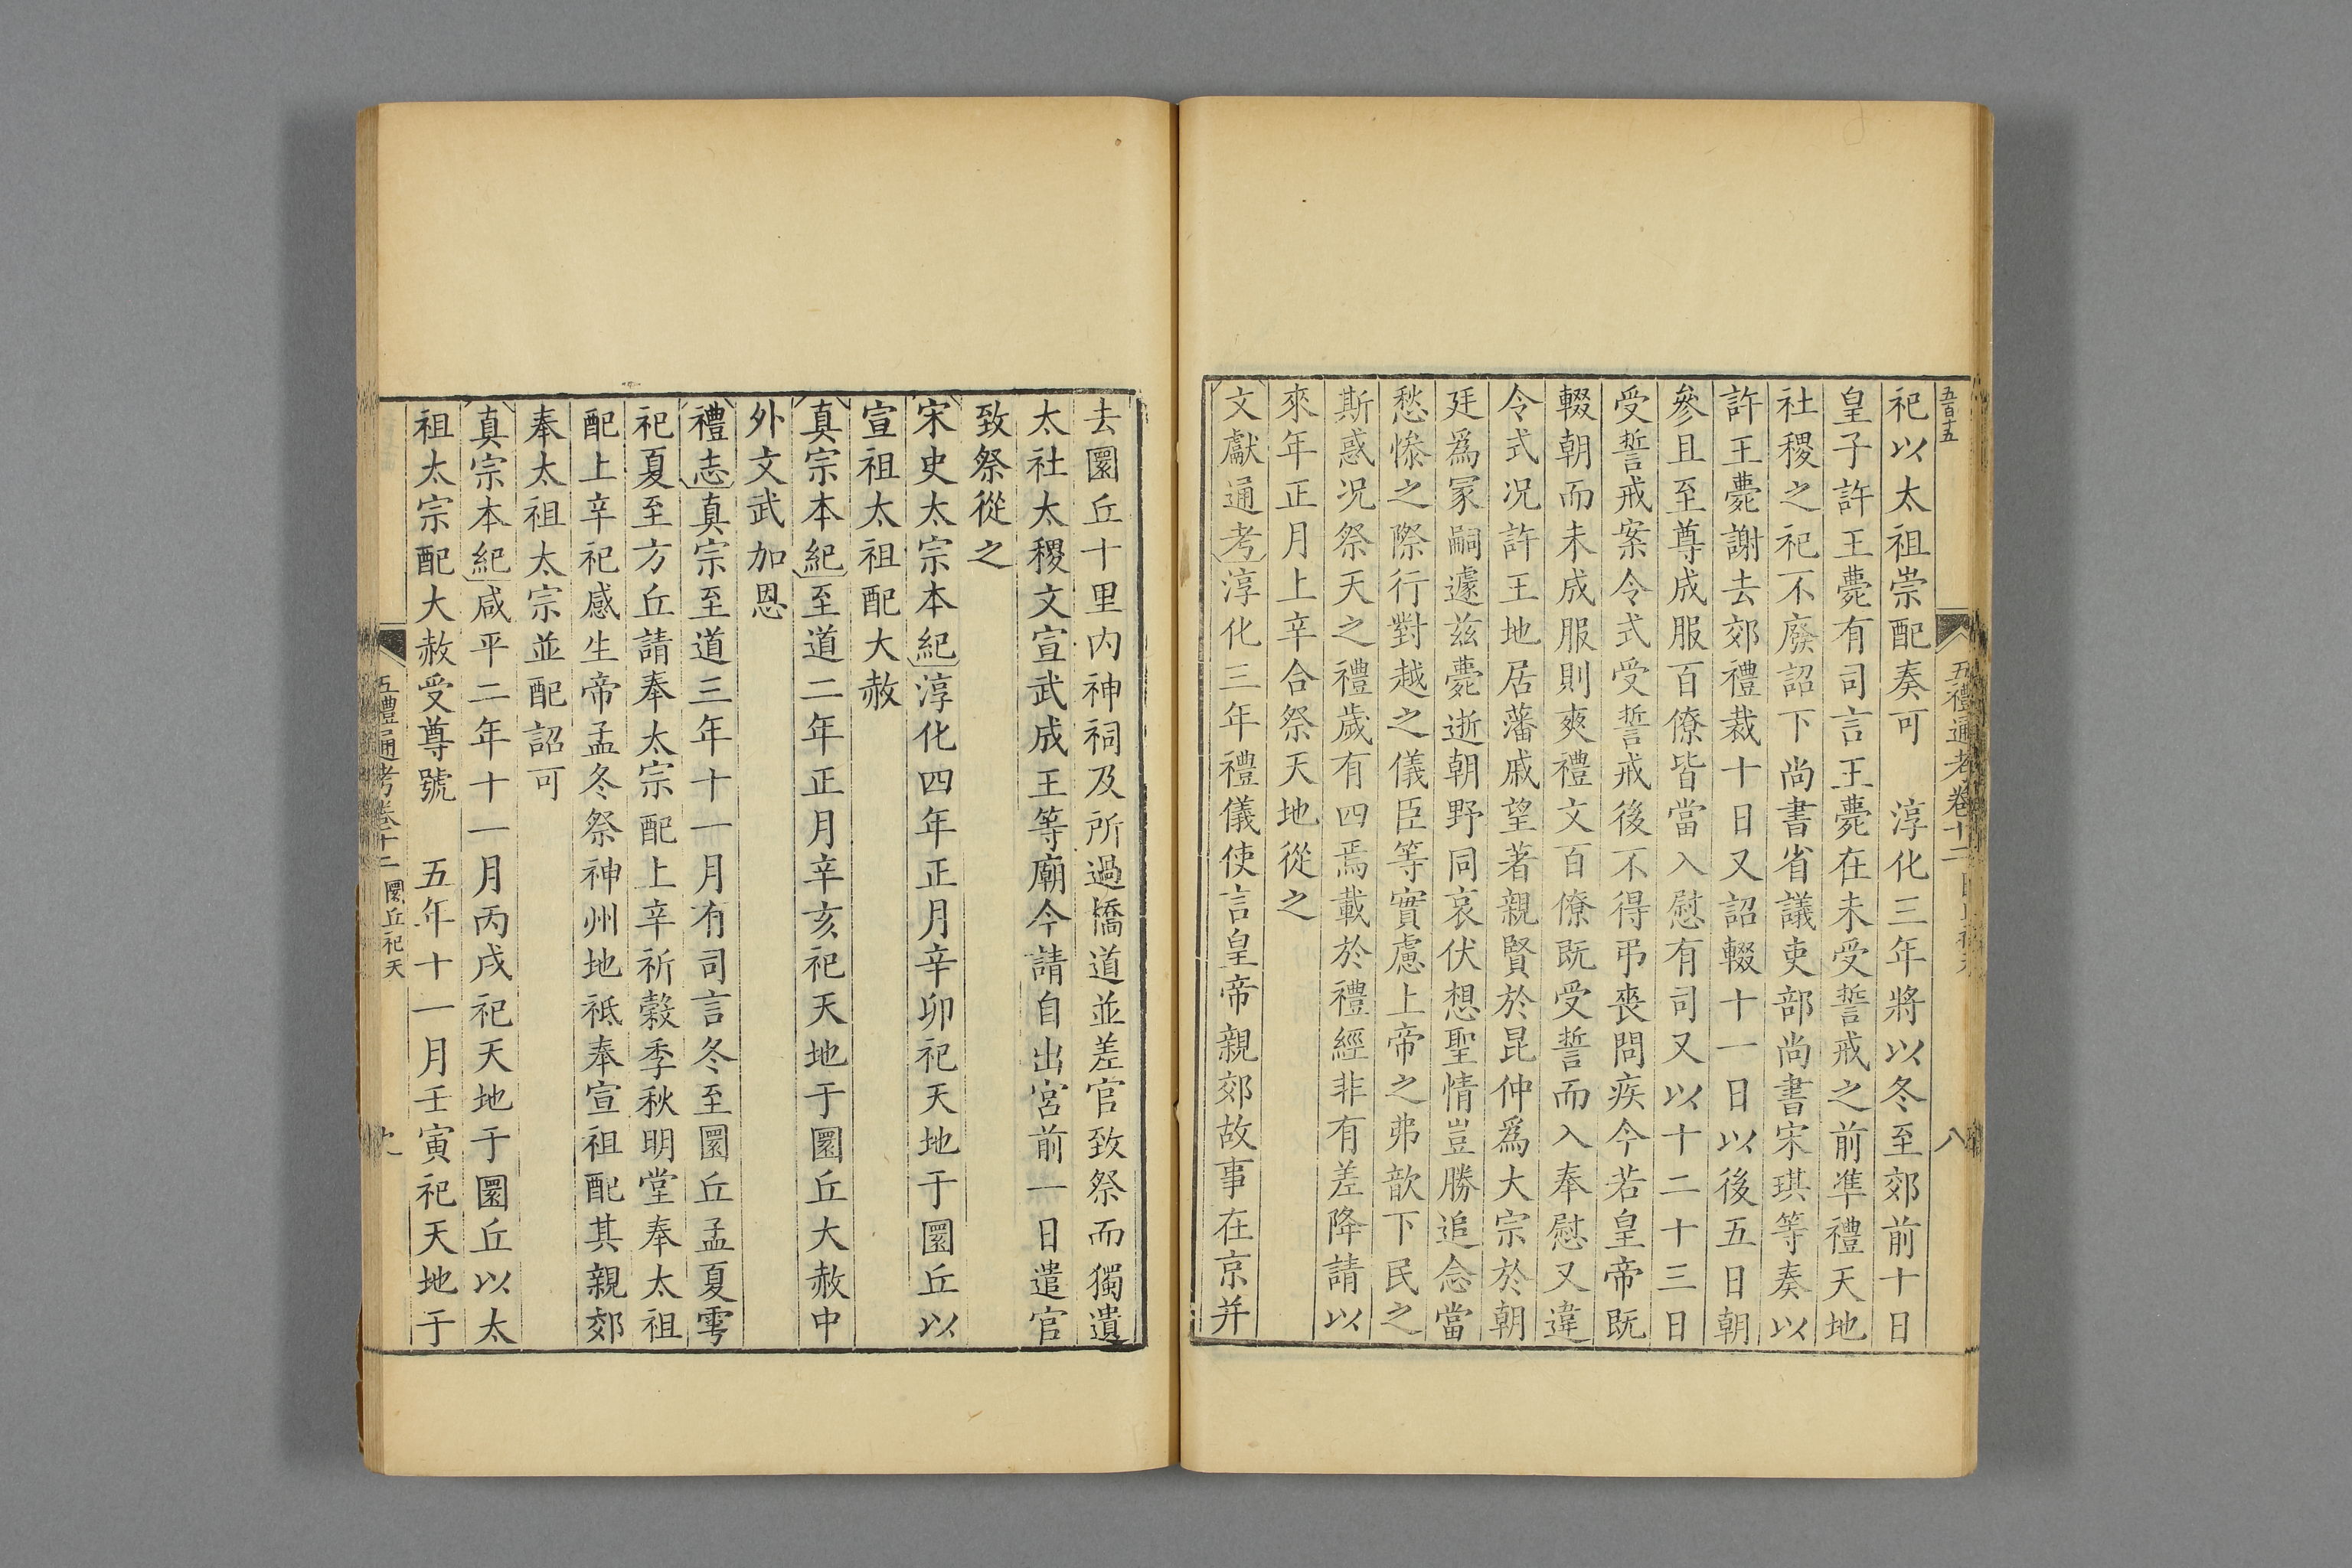 五百十五
五禮通考卷十二
八
祀以太祖崇配奏可　淳化三年將以冬至郊前十日
皇子許王薨有司言王薨在未受誓戒之前準禮天地
社稷之祀不廢詔下尚書省議吏部尚書宋琪等奏以
許王薨謝去郊禮裁十日又詔輟十一日以後五日朝
參且至尊成服百僚皆當入慰有司又以十二十三日
受誓戒案令式受誓戒後不得弔喪問疾今若皇帝既
輟朝而未成服則爽禮文百僚既受誓而入奉慰又違
令式况許王地居藩戚望著親賢於昆仲爲大宗於朝
廷爲冢嗣遽兹薨逝朝野同哀伏想聖情豈勝追念當
愁慘之際行對越之儀臣等實慮上帝之弗歆下民之
斯惑况祭天之禮歲有四焉載於禮經非有差降請以
來年正月上辛合祭天地從之
文獻通考淳化三年禮儀使言皇帝親郊故事在京并
去圜丘十里内神祠及所過橋道並差官致祭而獨遺
太社太稷文宣武成王等廟今請自出宮前一日遣官
致祭從之
宋史太宗本紀淳化四年正月辛卯祀天地于圜丘以
宣祖太祖配大赦
真宗本紀至道二年正月辛亥祀天地于圜丘大赦中
外文武加恩
禮志真宗至道三年十一月有司言冬至圜丘孟夏雩
祀夏至方丘請奉太宗配上辛祈穀季秋明堂奉太祖
配上辛祀感生帝孟冬祭神州地祗奉宣祖配其親郊
奉太祖太宗並配詔可
真宗本紀咸平二年十一月丙戌祀天地于圜丘以太
祖太宗配大赦受尊號　五年十一月壬寅祀天地于
五禮通考卷十二　圜丘祀天